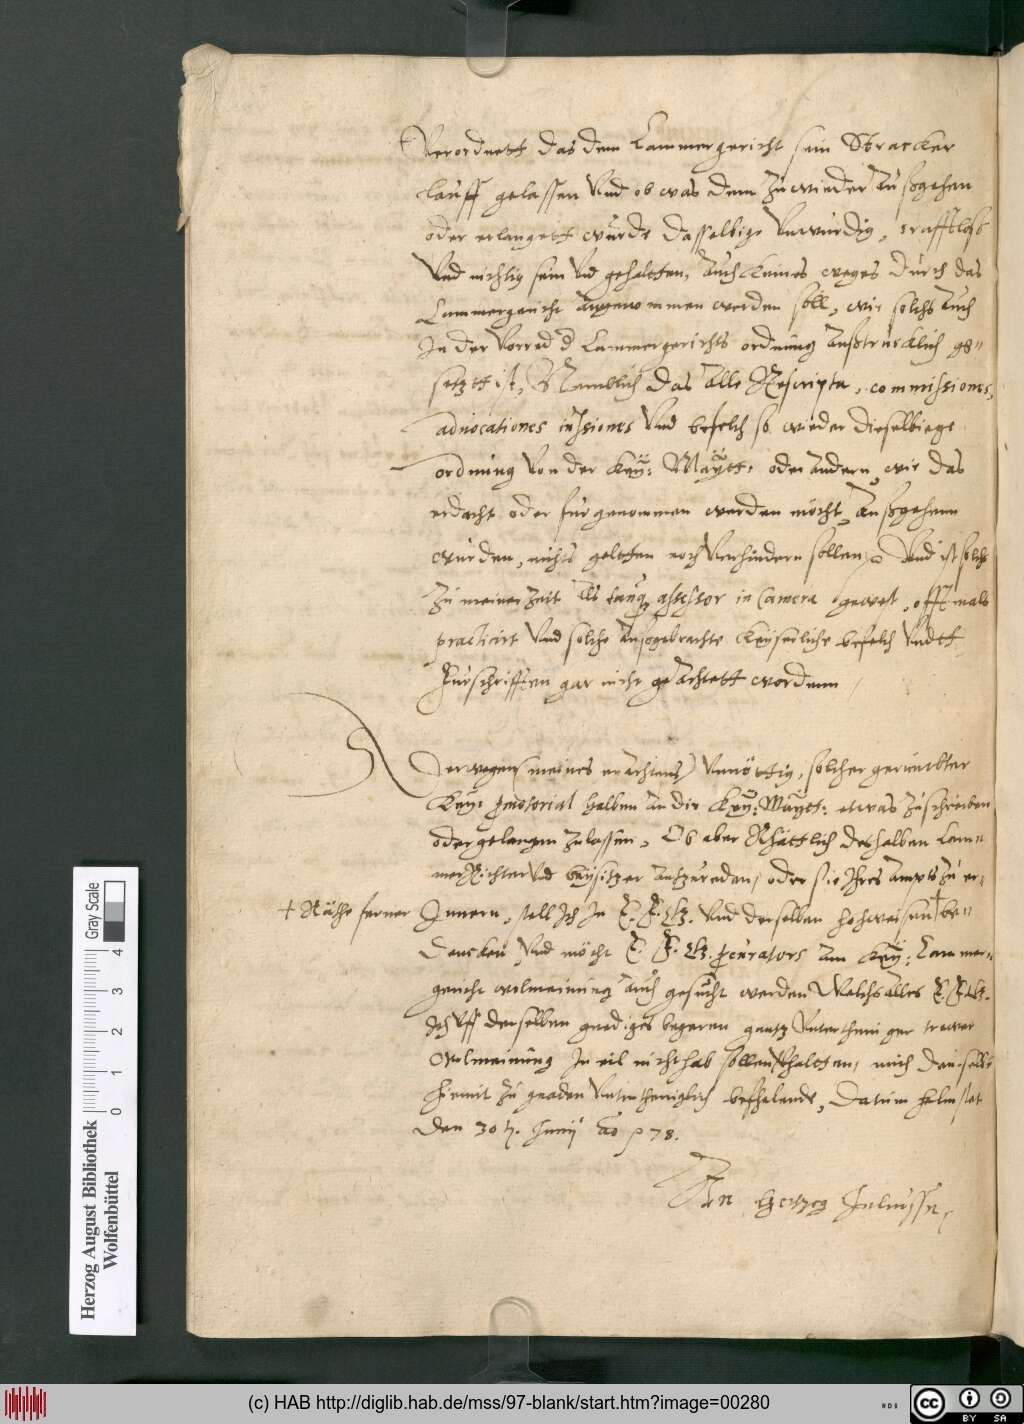 Verordnett das dem Cammergericht sein Stracker
lauff gelassen Vnd ob was dem zu wieder Außgehen
oder erlangett wurde dasselbige Vnwurdig, crafftloß
Vnd nichtig sein Vnd gehaltten, Auch keines weges durch das
Cammergericht Angenommen werden soll, wie solchs Auch
In der Vorred d Cammergerichts ordnung Außtrucklich ge=
setztt ist, Nemblich das Alle Rescripta, commissiones,
aduocationes Vnd befelch so wieder dieselbiege
ordnung von der Key: Maÿtt: oder Andern, wie das
erdacht oder furgenommen werden möcht, Außgehenn
wurden, nichts geltten noch Verhindern sollen, Vnd ist solchs
Zu meiner Zeit Als assessor in Camera gewest, offtmals
practicirt Vnd solche Außgebrachte Keyserliche befelch Vndtt
Furschrifften gar nicht geAchtett wordenn
Derwegen (meines erachtens) Vnnöttig, solcher gerumbter
Key: halben An die Key: Maÿtt: etwas Zuschreiben
oder gelangen Zulassen, Ob aber Rhättlich deshalben Cam=
merRichter Vnd beysitzer Antzureden, oder sie Ihres Ampts Zu er=
+ Räthe ferner Innern, stell Ich In E. F. G. Vnd derselben hochweisen + be=
dencken Vnd möcht E. F. G. procurators Am Key: Cammer=
gericht wolmeinung Auch gesucht werden Welchs Alles E. F. G.
Ich Vff derselben gnediges begeren gantz Vntertheniger trewer
Wolmeinung In eil nicht hab sollen Vhaltten, mich derselbe
hiemit Zu gnaden Vntertheniglich befhelende, Datum Helmstet
den 30 t. Junij Ao p 78.
An Hertzog Juliussen
Herzog August Bibliothek
Wolfenbüttel
0 1 2 3 4
Gray Scale
(c) HAB http://diglib.hab.de/mss/97-blank/start.htm?image=00280
cc BY SA